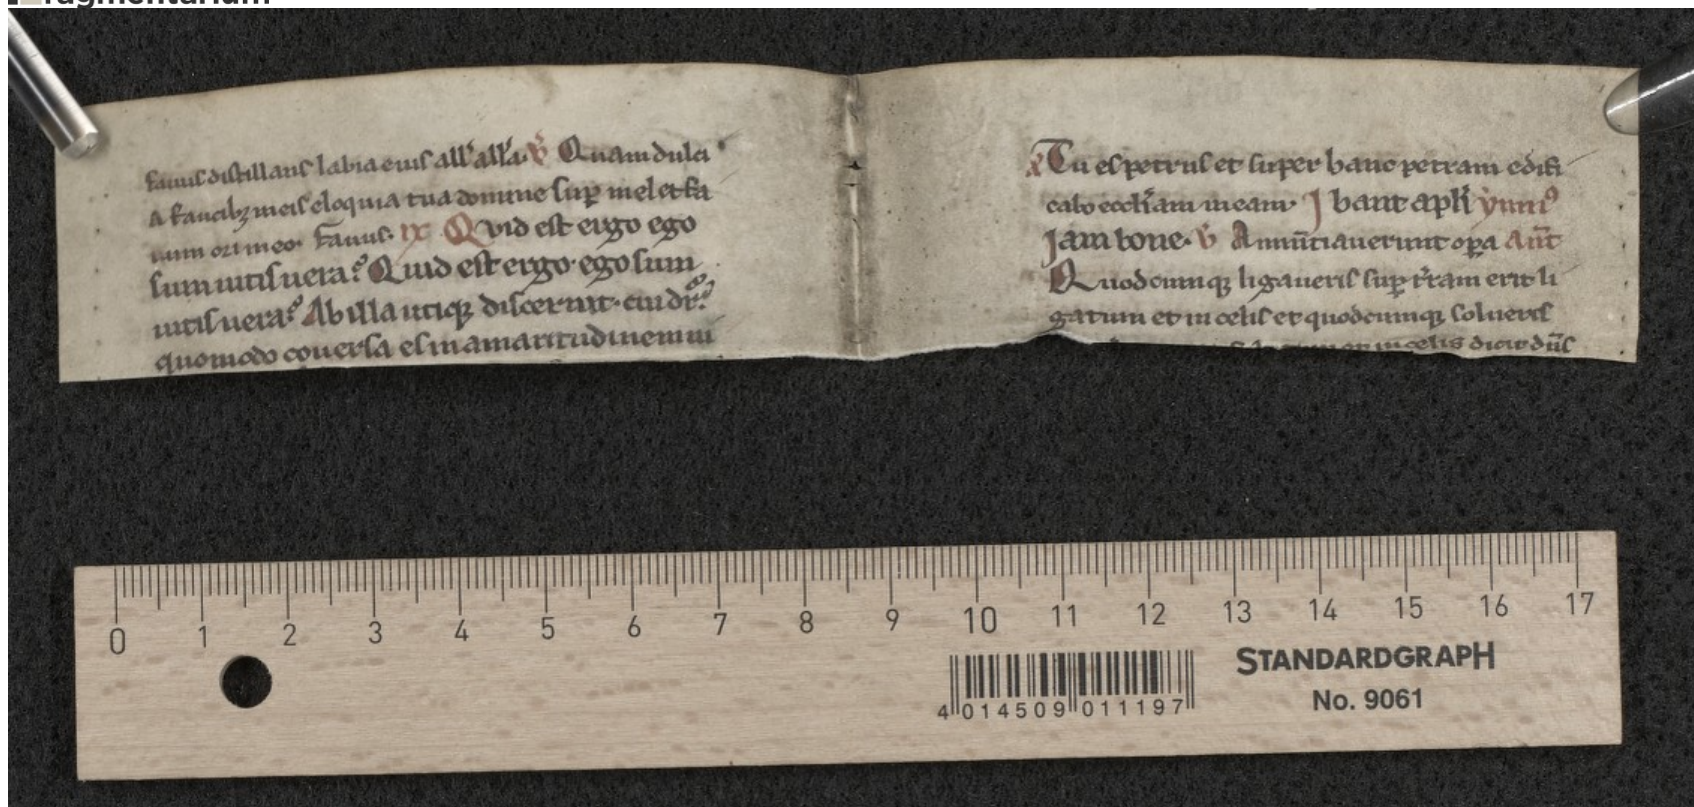 fragmentarium
fauus distillans labia eius all' all'a. v Quam dulci
a faucibꝫ meis eloquia tua domine sup mel et fa
uum ori meo. Fauus. ix Quid est ergo ego
sum uitis uera? Quid est ergo ego sum
uitis uera? Ab illa utiqꝫ discernit. cui dr̄?
quomodo couersa es in amaritudinem ui
Tu es petrus et super hanc petram edifi
cabo eccl'iam meam. Ibant apl'i ymn9
Jam bone. v Annūtiauerunt oꝑa Ant̄
Quodcumqꝫ ligaueris suꝑ t'ram erit li
gatum et in celis et quodcumqꝫ solueris
in celis dicit dūs
0 1 2 3 4 5 6 7 8 9 10 11 12 13 14 15 16 17
STANDARDGRAPH
No. 9061
4 014509 011197